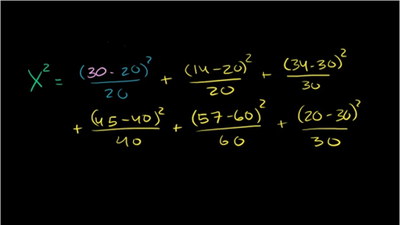 X² = (30 - 20)²/20 + (14 - 20)²/20 + (34 - 30)²/30
+ (45 - 40)²/40 + (57 - 60)²/60 + (20 - 30)²/30